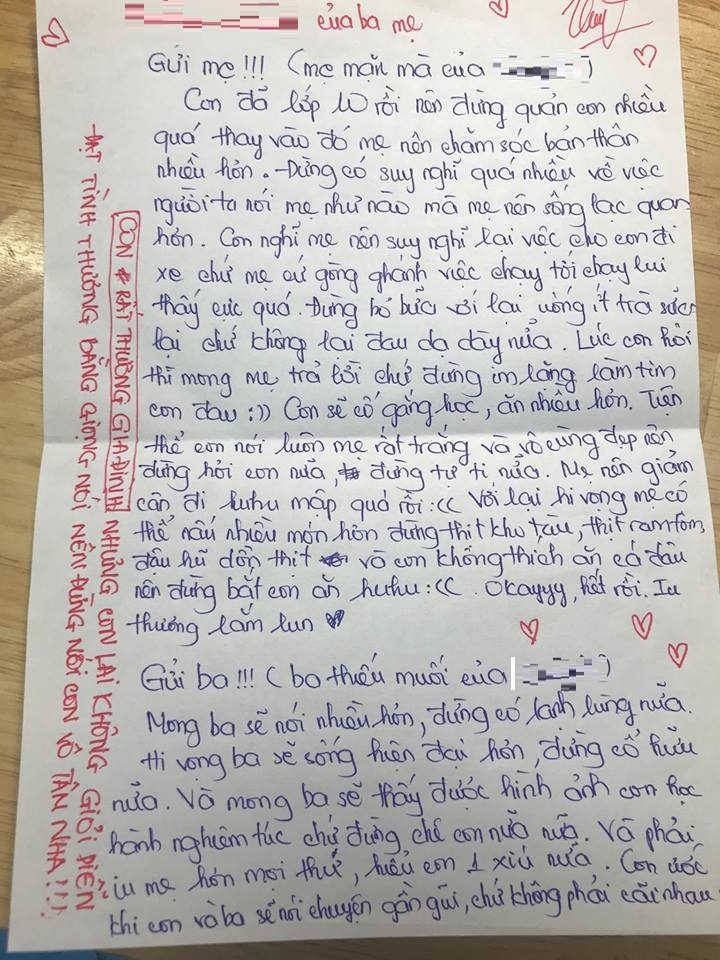 của ba mẹ
Gửi mẹ!!! (mẹ mặn mà của )
Con đã lớp 10 rồi nên đừng quản con nhiều
quá thay vào đó mẹ nên chăm sóc bản thân
nhiều hơn. Đừng có suy nghĩ quá nhiều về việc
người ta nói mẹ như nào mà mẹ nên sống lạc quan
hơn. Con nghĩ mẹ nên suy nghĩ lại việc cho con đi
xe chứ mẹ cứ gồng ghánh việc chạy tới chạy lui
thấy cực quá. Đừng bỏ bữa với lại uống ít trà sữa
lại chứ không lại đau dạ dày nữa. Lúc con hỏi
thì mong mẹ trả lời chứ đừng im lặng làm tim
con đau :)) Con sẽ cố gắng học, ăn nhiều hơn. Tiện
thể con nói luôn mẹ rất trắng và vô cùng đẹp nên
đừng hỏi con nữa, đừng tự ti nữa. Mẹ nên giảm
cân đi huhu mập quá rồi :(( Với lại hi vọng mẹ có
thể nấu nhiều món hơn đừng thịt kho tàu, thịt ram tôm,
đậu hũ dồn thịt và con không thích ăn cá đâu
nên đừng bắt con ăn huhu :(( . Okayyy, hết rồi. Iu
thương lắm lun
Gửi ba!!! (ba thiếu muối của )
Mong ba sẽ nói nhiều hơn, đừng có lạnh lùng nữa.
Hi vọng ba sẽ sống hiện đại hơn, đừng cổ hữu
nữa. Và mong ba sẽ thấy được hình ảnh con học
hành nghiêm túc chứ đừng chê con nữa nữa. Và phải
iu mẹ hơn mọi thứ, hiểu con 1 xíu nữa. Con ước
khi con và ba sẽ nói chuyện gần gũi, chứ không phải cãi nhau
CON RẤT THƯƠNG GIA ĐÌNH NHƯNG CON LẠI KHÔNG GIỎI DIỄN
ĐẠT TÌNH THƯƠNG BẰNG GIỌNG NÓI NÊN ĐỪNG NÓI CON VÔ TÂM NHA!!!